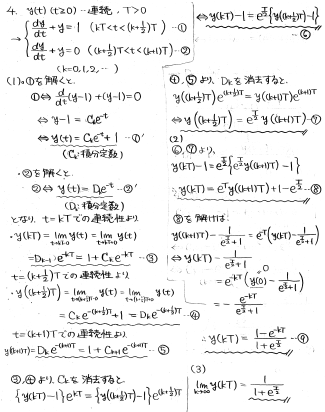 4. y(t) (t≥0) …連続, T>0
→ { dy/dt + y = 1 (kT<t<(k+½)T) …①
dy/dt + y = 0 ((k+½)T<t<(k+1)T) …②
(k=0,1,2,…)
(1)。①を解くと、
①⇔ d/dt (y-1)+(y-1)=0
⇔ y-1 = Cₖe⁻ᵗ
⇔ y(t) = Cₖe⁻ᵗ+1 …①′
(Cₖ:積分定数)
・②を解くと、
②⇔ y(t) = Dₖe⁻ᵗ …②′
(Dₖ:積分定数)
となり、t=kTでの連続性より
・y(kT)=lim y(t)=lim y(t)
=Dₖ₋₁e^{-kT}=1+Cₖe^{-kT} …③
t=(k+½)Tでの連続性より
・y((k+½)T)=lim y(t)=lim y(t)
=Cₖe^{-(k+½)T}+1=Dₖe^{-(k+½)T} …④
t=(k+1)Tでの連続性より
y((k+1)T)=Dₖe^{-(k+1)T}=1+Cₖ₊₁e^{-(k+1)T} …⑤
③,④より、Cₖを消去すると
{y(kT)-1}e^{kT}={y((k+½)T)-1}e^{(k+½)T}
⇔y(kT)-1=e^{T/2}{y((k+½)T)-1}
…⑥
④,⑤より、Dₖを消去すると、
y((k+½)T)e^{(k+½)T}=y((k+1)T)e^{(k+1)T}
⇔y((k+½)T)=e^{T/2}y((k+1)T) …⑦
(2)
⑥,⑦より、
y(kT)-1=e^{T/2}{e^{T/2}y((k+1)T)-1}
∴y(kT)=e^{T}y((k+1)T)+1-e^{T/2} …⑧
⑧を解けば、
⇔y(kT)-1/(e^{T/2}+1)
=e^{-kT}(y(0)-1/(e^{T/2}+1))
0
=-e^{-kT}/(e^{T/2}+1)
∴y(kT)=(1-e^{-kT})/(1+e^{T/2}) …⑨
(3)
lim_{k→∞} y(kT)=1/(1+e^{T/2})